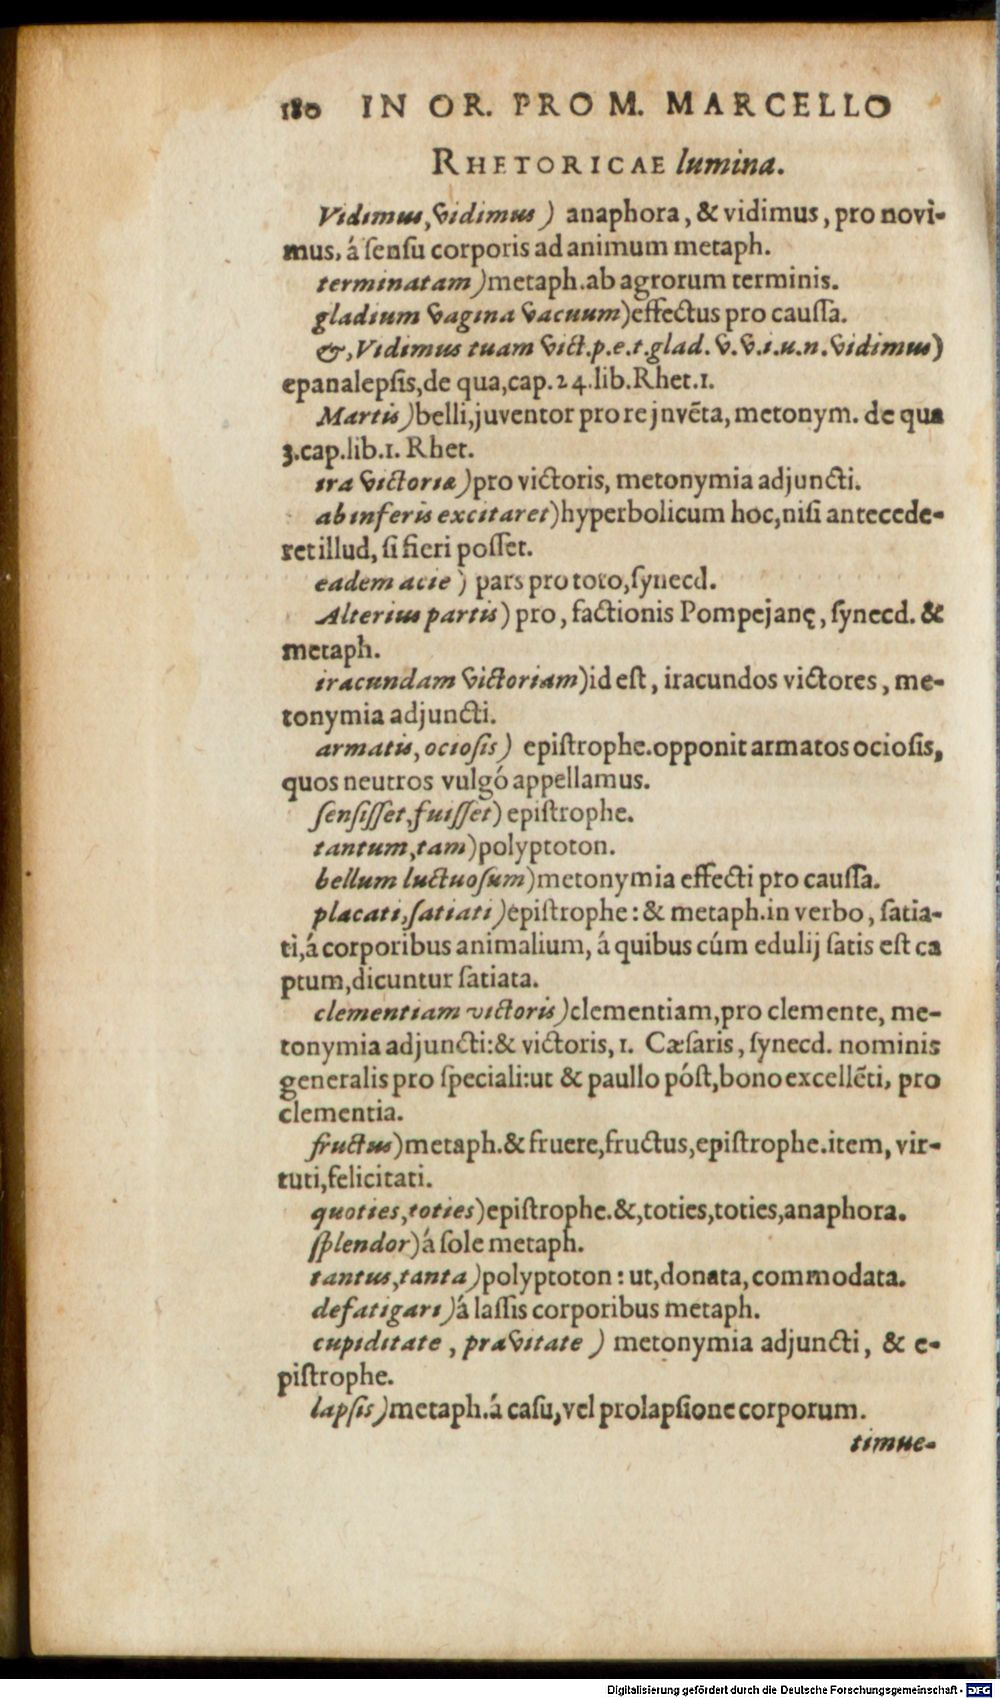 180 IN OR. PRO M. MARCELLO
RHETORICAE lumina.
Vidimus, vidimus) anaphora, & vidimus, pro novi-
mus, á sensu corporis ad animum metaph.
terminatam) metaph. ab agrorum terminis.
gladium vagina vacuum) effectus pro caussa.
&, Vidimus tuam vict. p. e. t. glad. v. v. i. u. n. vidimus)
epanalepsis, de qua, cap. 24. lib. Rhet. 1.
Martis) belli, juventor pro re jnvẽta, metonym. de qua
3. cap. lib. 1. Rhet.
ira victoriæ) pro victoris, metonymia adjuncti.
ab inferis excitaret) hyperbolicum hoc, nisi antecede-
ret illud, si fieri posset.
eadem acie) pars pro toto, synecd.
Alterius partis) pro, factionis Pompejanę, synecd. &
metaph.
iracundam victoriam) id est, iracundos victores, me-
tonymia adjuncti.
armatis, ociosis) epistrophe. opponit armatos ociosis,
quos neutros vulgó appellamus.
sensisset, fuisset) epistrophe.
tantum, tam) polyptoton.
bellum luctuosum) metonymia effecti pro caussa.
placati, satiati) epistrophe: & metaph. in verbo, satia-
ti, á corporibus animalium, á quibus cúm edulij satis est ca
ptum, dicuntur satiata.
clementiam victoris) clementiam, pro clemente, me-
tonymia adjuncti: & victoris, 1. Cæsaris, synecd. nominis
generalis pro speciali: ut & paullo póst, bono excellẽti, pro
clementia.
fructus) metaph. & fruere, fructus, epistrophe. item, vir-
tuti, felicitati.
quoties, toties) epistrophe. &, toties, toties, anaphora.
splendor) á sole metaph.
tantus, tanta) polyptoton: ut, donata, commodata.
defatigari) á lassis corporibus metaph.
cupiditate, pravitate) metonymia adjuncti, & e-
pistrophe.
lapsis) metaph. á casu, vel prolapsione corporum.
timue-
Digitalisierung gefördert durch die Deutsche Forschungsgemeinschaft - DFG